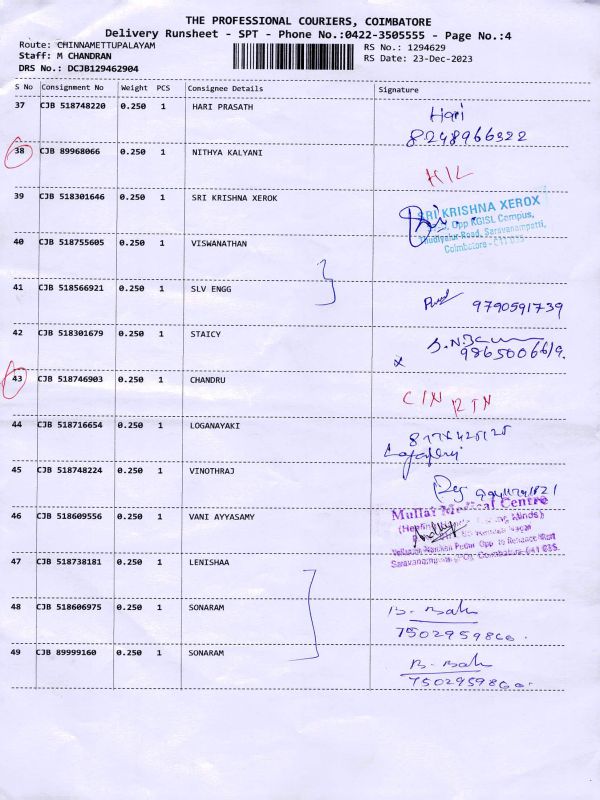 THE PROFESSIONAL COURIERS, COIMBATORE
Delivery Runsheet - SPT - Phone No.:0422-3505555 - Page No.:4
Route: CHINNAMETTUPALAYAM
RS No.: 1294629
Staff: M CHANDRAN
RS Date: 23-Dec-2023
DRS No.: DCJB129462904
S No Consignment No Weight PCS Consignee Details Signature
37 CJB 518748220 0.250 1 HARI PRASATH
Hari
8248966322
38 CJB 89968066 0.250 1 NITHYA KALYANI
H/L
39 CJB 518301646 0.250 1 SRI KRISHNA XEROK
SRI KRISHNA XEROX
Opp KGISL Campus,
Thudiyalur Road, Saravanampatti,
Coimbatore - 641 035
40 CJB 518755605 0.250 1 VISWANATHAN
41 CJB 518566921 0.250 1 SLV ENGG
9790591739
42 CJB 518301679 0.250 1 STAICY
x
9865006619.
43 CJB 518746903 0.250 1 CHANDRU
C/N RTN
44 CJB 518716654 0.250 1 LOGANAYAKI
45 CJB 518748224 0.250 1 VINOTHRAJ
46 CJB 518609556 0.250 1 VANI AYYASAMY
Mullai Medical Centre
47 CJB 518738181 0.250 1 LENISHAA
48 CJB 518606975 0.250 1 SONARAM
B. Bah
7502959860.
49 CJB 89999160 0.250 1 SONARAM
B. Bah
7502959860.